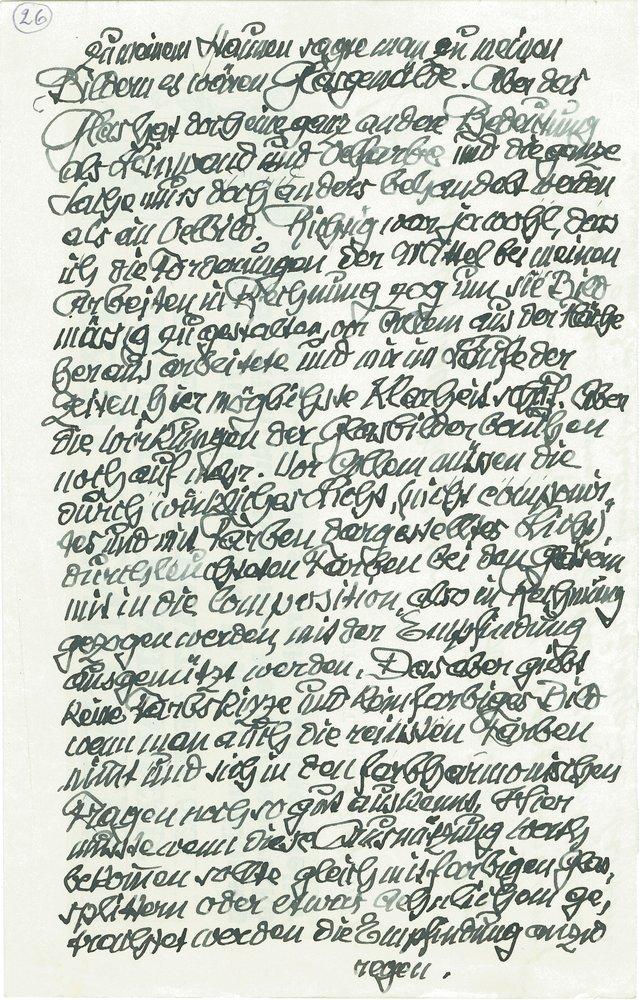 26
zu meinem Staunen sagte man zu meinen
Bildern es wären Glasgemälde. Aber das
Glas hat doch eine ganz andere Bedeutung
als Leinwand und Oelfarbe und die ganze
Sache muss doch anders behandelt werden
als ein Oelbild. Richtig war ja wohl, dass
ich die Forderungen der Mittel bei meinen
Arbeiten in Rechnung zog um sie Bild
mässig zu gestalten, vor Allem aus der Fläche
heraus arbeitete und mir im Laufe der
Zeiten hier möglichste Klarheit schuf. Aber
die Wirkungen der Glasbilder beruhen
noch auf mehr. Vor Allem müssen die
durch wirkliches Licht, (nicht componir-
tes und mit Farben dargestelltes Licht)
durchleuchteten Farben bei den Gläsern
mit in die Composition, also in Rechnung
gezogen werden, mit der Empfindung
ausgenützt werden. Das aber giebt
keine Farbskizze und kein farbiges Bild
wenn man auch die reinsten Farben
nimt und sich in den farbharmonischen
Fragen noch so gut auskennt. Hier
müsste wenn diese Ausnützung Werth
bekomen sollte gleich mit farbigen Glas-
splittern oder etwas aehnlichem ge-
trachtet werden die Empfindung anzu
regen.